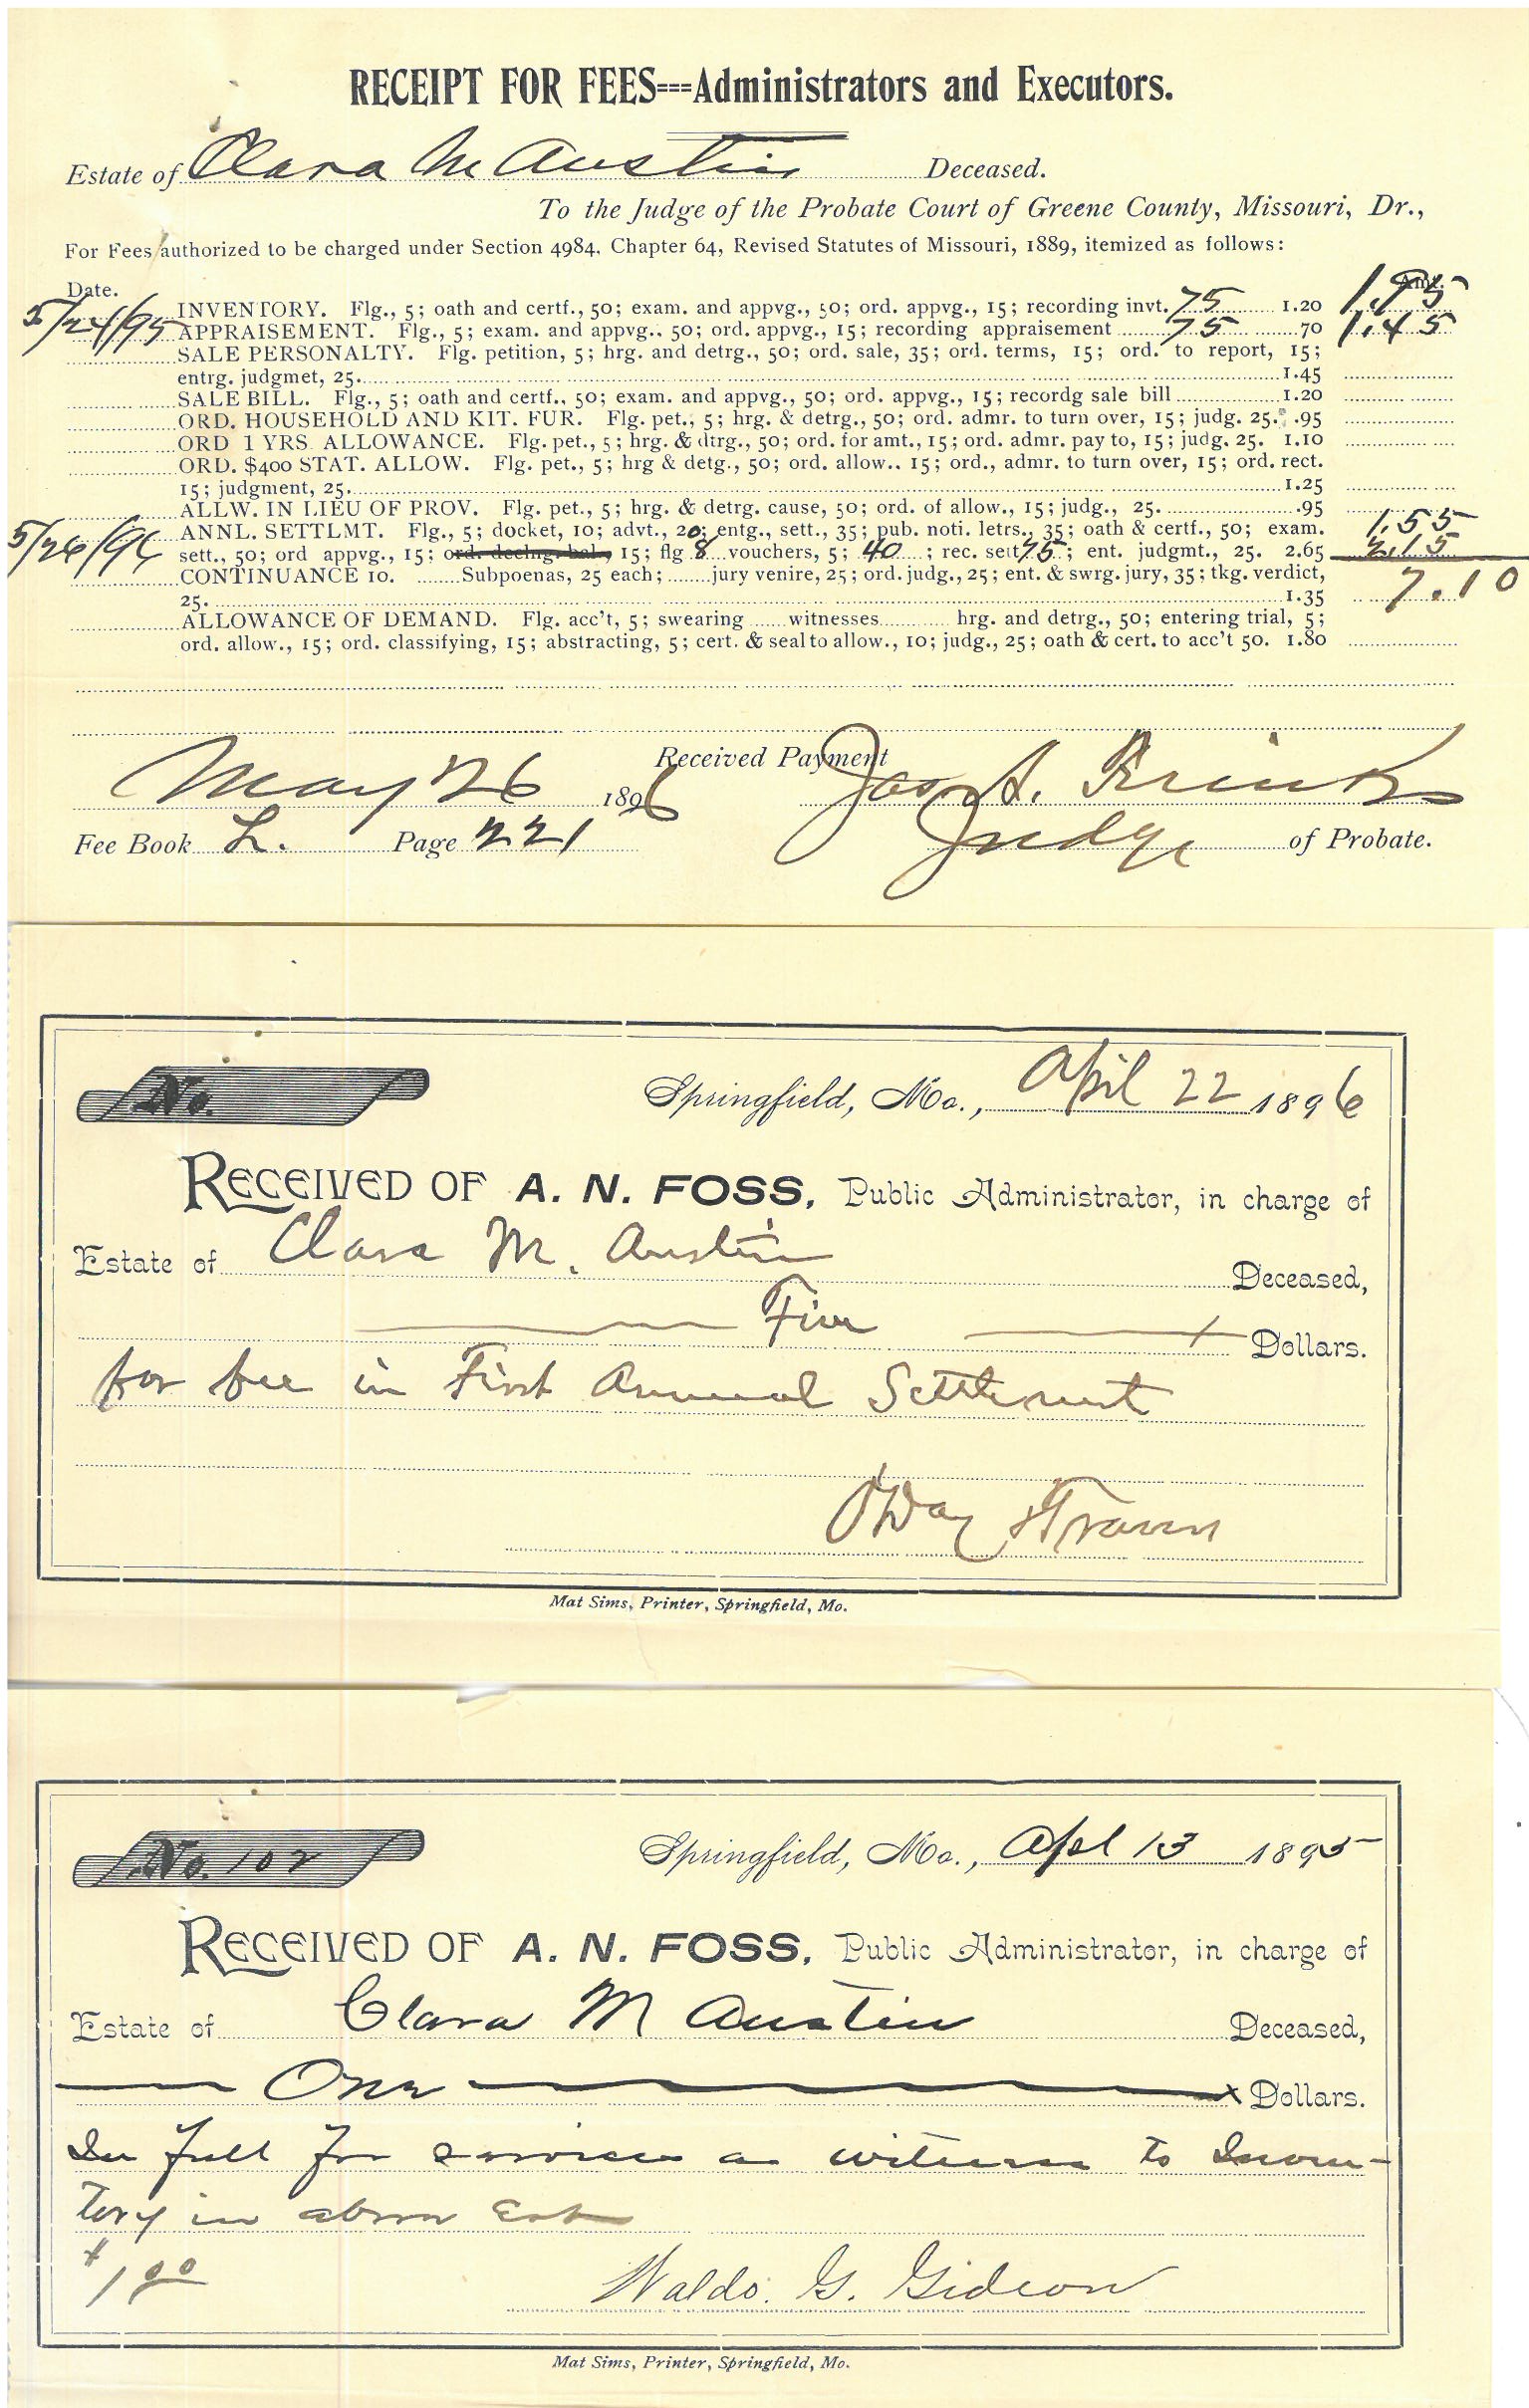 RECEIPT FOR FEES===Administrators and Executors.
Estate of Clara M Austin Deceased.
To the Judge of the Probate Court of Greene County, Missouri, Dr.,
For Fees authorized to be charged under Section 4984. Chapter 64, Revised Statutes of Missouri, 1889, itemized as follows:
Date. Amt.
5/24/95 INVENTORY. Flg., 5; oath and certf., 50; exam. and appvg., 50; ord. appvg., 15; recording invt. 75 1.20 1.95
APPRAISEMENT. Flg., 5; exam. and appvg.. 50; ord. appvg., 15; recording appraisement 75 70 1.45
SALE PERSONALTY. Flg. petition, 5; hrg. and detrg., 50; ord. sale, 35; ord. terms, 15; ord. to report, 15;
entrg. judgmet, 25. 1.45
SALE BILL. Flg., 5; oath and certf., 50; exam. and appvg., 50; ord. appvg., 15; recordg sale bill 1.20
ORD. HOUSEHOLD AND KIT. FUR. Flg. pet., 5; hrg. & detrg., 50; ord. admr. to turn over, 15; judg. 25. .95
ORD 1 YRS. ALLOWANCE. Flg. pet., 5; hrg. & dtrg., 50; ord. for amt., 15; ord. admr. pay to, 15; judg. 25. 1.10
ORD. $400 STAT. ALLOW. Flg. pet., 5; hrg & detg., 50; ord. allow.. 15; ord., admr. to turn over, 15; ord. rect.
15; judgment, 25. 1.25
ALLW. IN LIEU OF PROV. Flg. pet., 5; hrg. & detrg. cause, 50; ord. of allow., 15; judg., 25. .95
5/26/96 ANNL. SETTLMT. Flg., 5; docket, 10; advt., 20; entg., sett., 35; pub. noti. letrs., 35; oath & certf., 50; exam. 1.55
sett., 50; ord appvg., 15; ord. declng. bal., 15; flg 8 vouchers, 5; 40 ; rec. sett 75; ent. judgmt., 25. 2.65 2.15
CONTINUANCE 10. Subpoenas, 25 each; jury venire, 25; ord. judg., 25; ent. & swrg. jury, 35; tkg. verdict,
25. 1.35 7.10
ALLOWANCE OF DEMAND. Flg. acc't, 5; swearing witnesses hrg. and detrg., 50; entering trial, 5;
ord. allow., 15; ord. classifying, 15; abstracting, 5; cert. & seal to allow., 10; judg., 25; oath & cert. to acc't 50. 1.80
Received Payment
May 26 1896 Jas A.
Fee Book L. Page 221 Judge of Probate.
No. Springfield, Mo., April 22 1896
RECEIVED OF A. N. FOSS, Public Administrator, in charge of
Estate of Clara M. Austin Deceased,
Five Dollars.
for fee in First Annual Settlement
Mat Sims, Printer, Springfield, Mo.
No. 102 Springfield, Mo., Apl 13 1895
RECEIVED OF A. N. FOSS, Public Administrator, in charge of
Estate of Clara M Austin Deceased,
One Dollars.
In full for services as witness to Inven-
tory in above Est
$1.00 Waldo. G. Gideon
Mat Sims, Printer, Springfield, Mo.